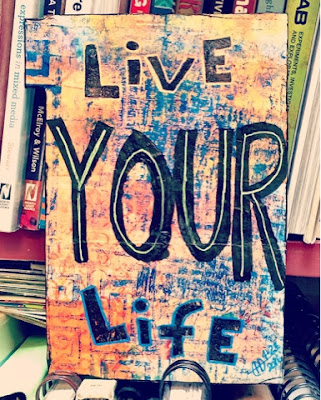 LIVE
YOUR
Life
expressions in mixed media
McElroy & Wilson
LAB
EXPERIMENTS, INVESTI
AND EXPLOR